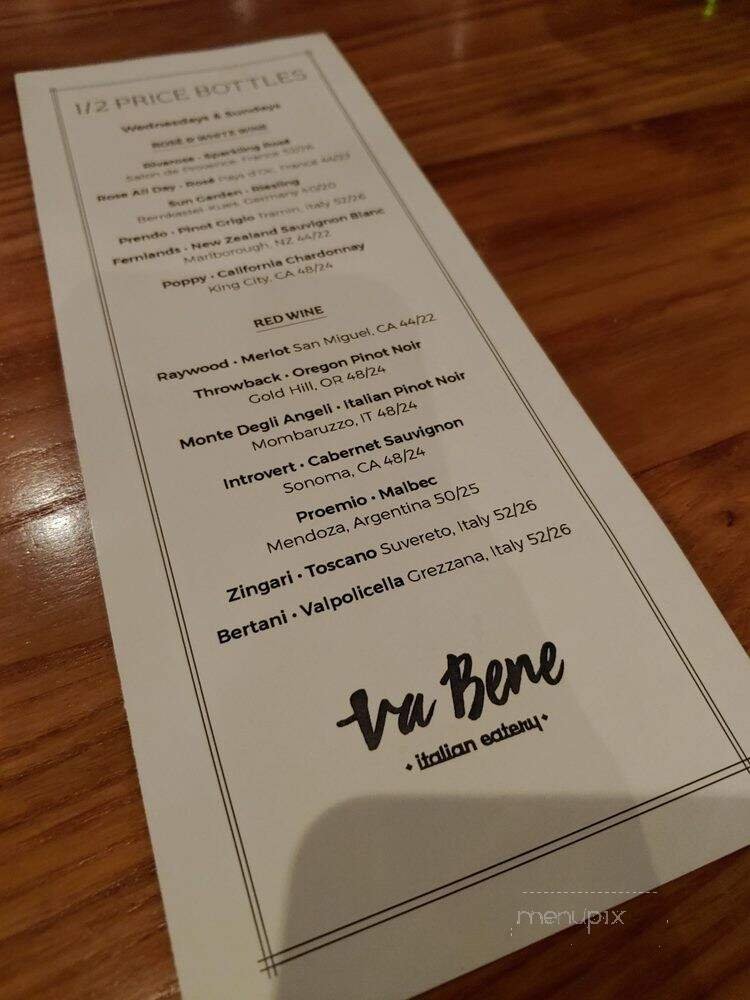 1/2 PRICE BOTTLES
Wednesdays & Sundays
ROSÉ & WHITE WINE
Riverose • Sparkling Rosé
Salon de Provence, France 52/26
Rose All Day • Rosé Pays d'Oc, France 44/22
Sun Garden • Riesling
Bernkastel-Kues, Germany 40/20
Prendo • Pinot Grigio Tramin, Italy 52/26
Fernlands • New Zealand Sauvignon Blanc
Marlborough, NZ 44/22
Poppy • California Chardonnay
King City, CA 48/24
RED WINE
Raywood • Merlot San Miguel, CA 44/22
Throwback • Oregon Pinot Noir
Gold Hill, OR 48/24
Monte Degli Angeli • Italian Pinot Noir
Mombaruzzo, IT 48/24
Introvert • Cabernet Sauvignon
Sonoma, CA 48/24
Proemio • Malbec
Mendoza, Argentina 50/25
Zingari • Toscano Suvereto, Italy 52/26
Bertani • Valpolicella Grezzana, Italy 52/26
Va Bene
• italian eatery •
menupix